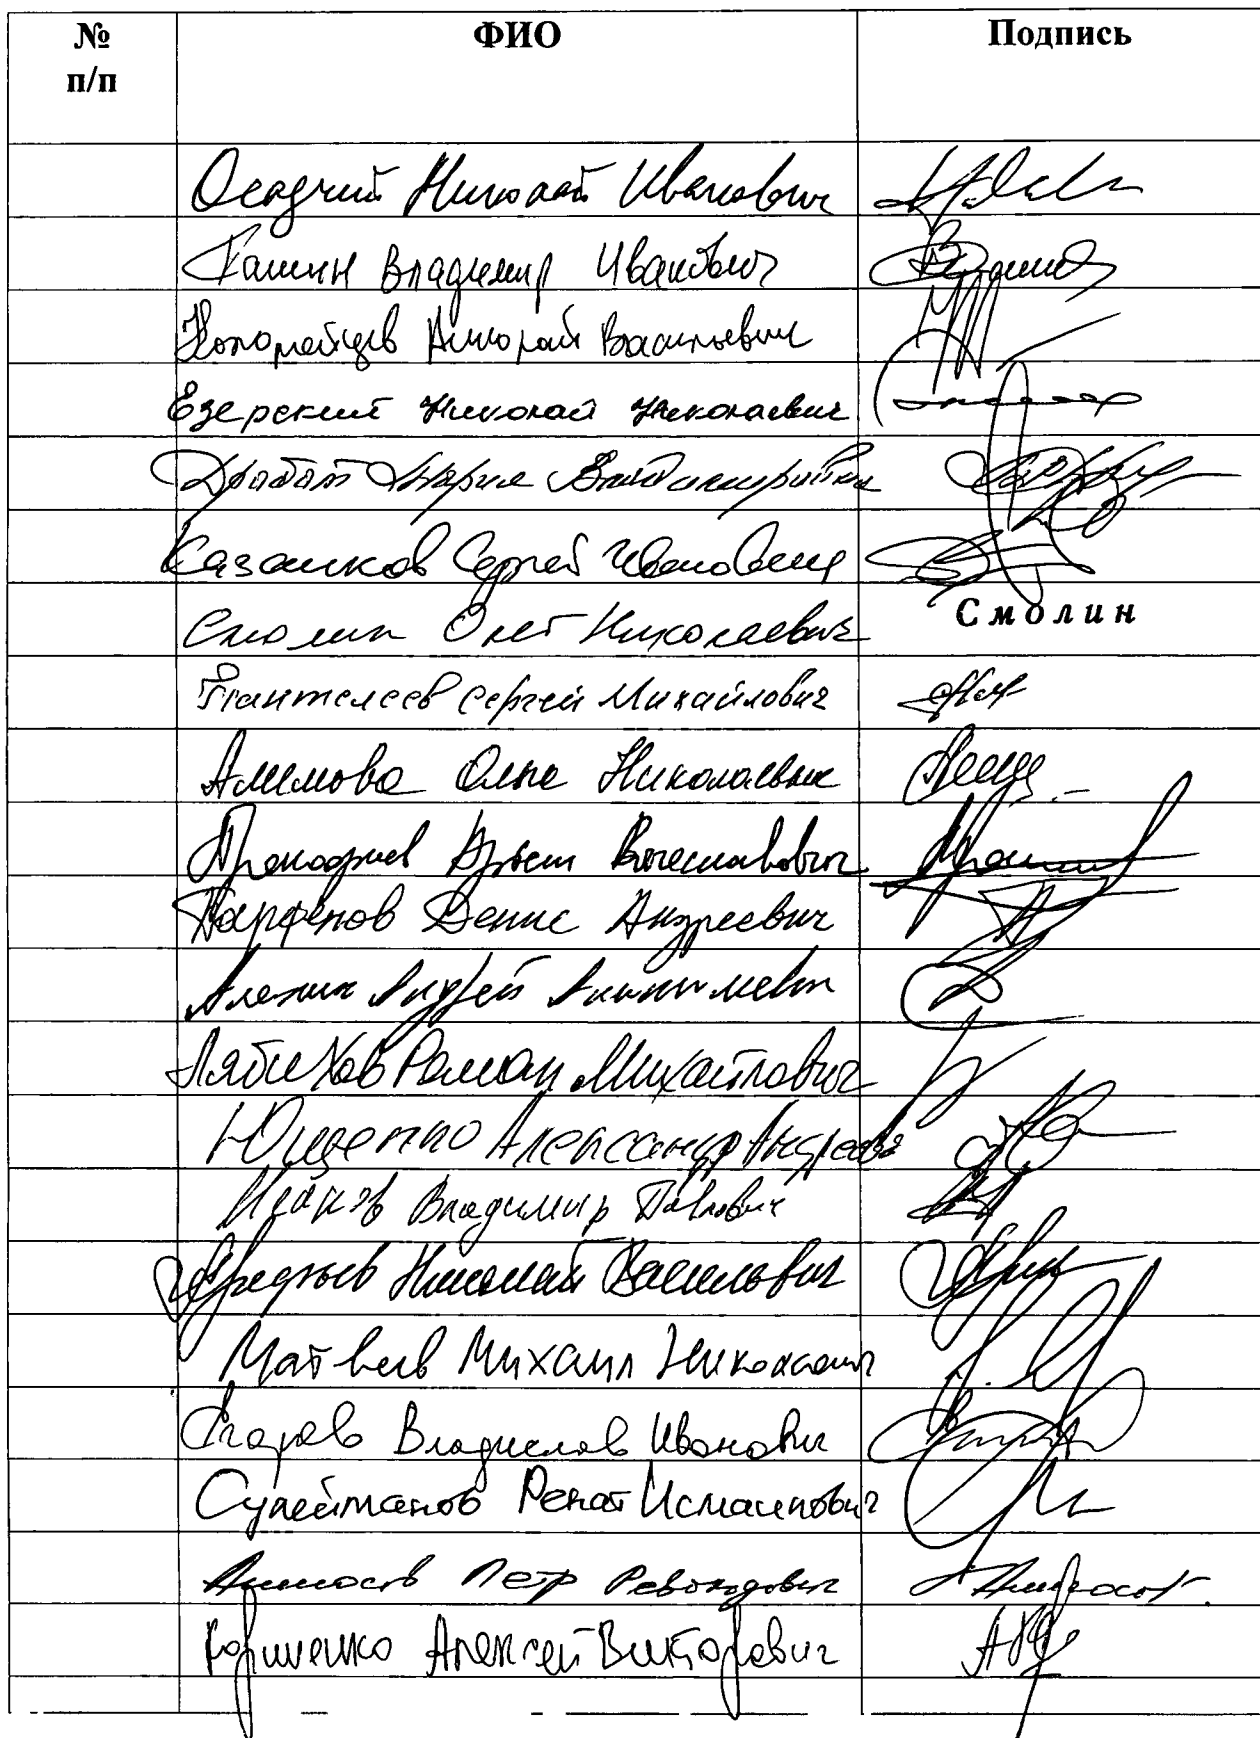 № п/п ФИО Подпись
Осадчий Николай Иванович
Кашин Владимир Иванович
Коломейцев Николай Васильевич
Езерский Николай Николаевич
Дробот Мария Владимировна
Казанков Сергей Иванович
Смолин Олег Николаевич Смолин
Пантелеев Сергей Михайлович
Алимова Ольга Николаевна
Прокофьев Артем Вячеславович
Парфенов Денис Андреевич
Алехин Андрей Анатольевич
Лябихов Роман Михайлович
Ющенко Александр Андреев
Исаков Владимир Павлович
Арефьев Николай Васильевич
Матвеев Михаил Николаевич
Егоров Владислав Иванович
Сулейманов Ренат Исмаилович
Аммосов Петр Револьдович
Корниенко Алексей Викторович